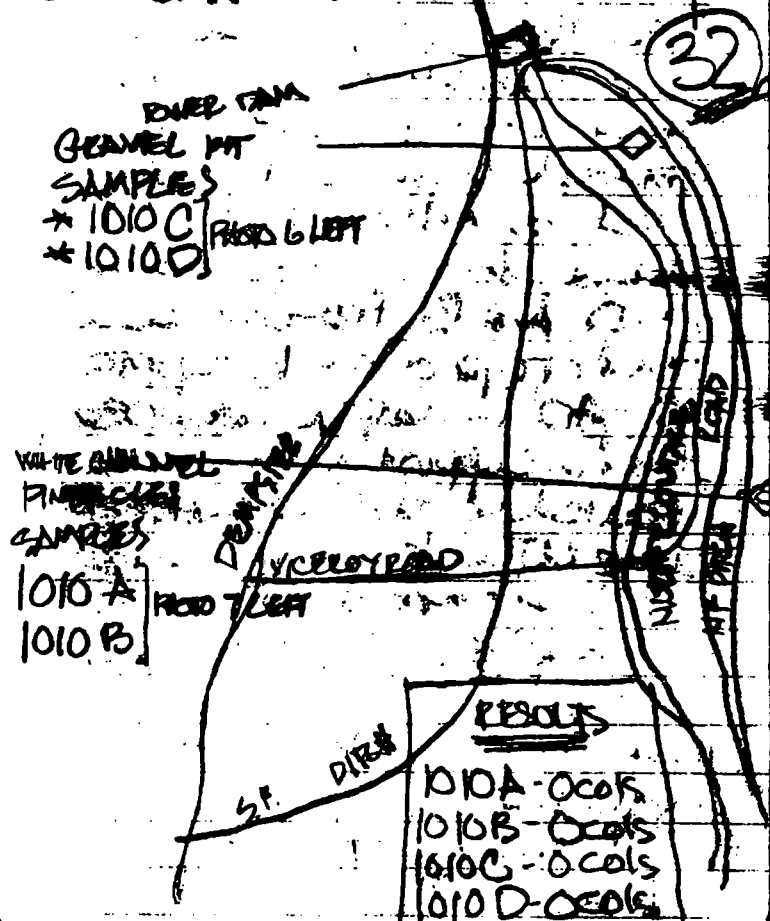 32
POWER DAM
GRAVEL PIT
SAMPLES
* 1010 C
* 1010 D
PHOTO 6 LEFT
WHITE CHANNEL
SAMPLES
1010 A
1010 B
PHOTO 7 LEFT
DEMPSTER
VICEROY ROAD
ROAD
NF DITCH
SF DITCH
RESULTS
1010A - 0 cols
1010B - 0 cols
1010C - 0 cols
1010 D - 0 cols